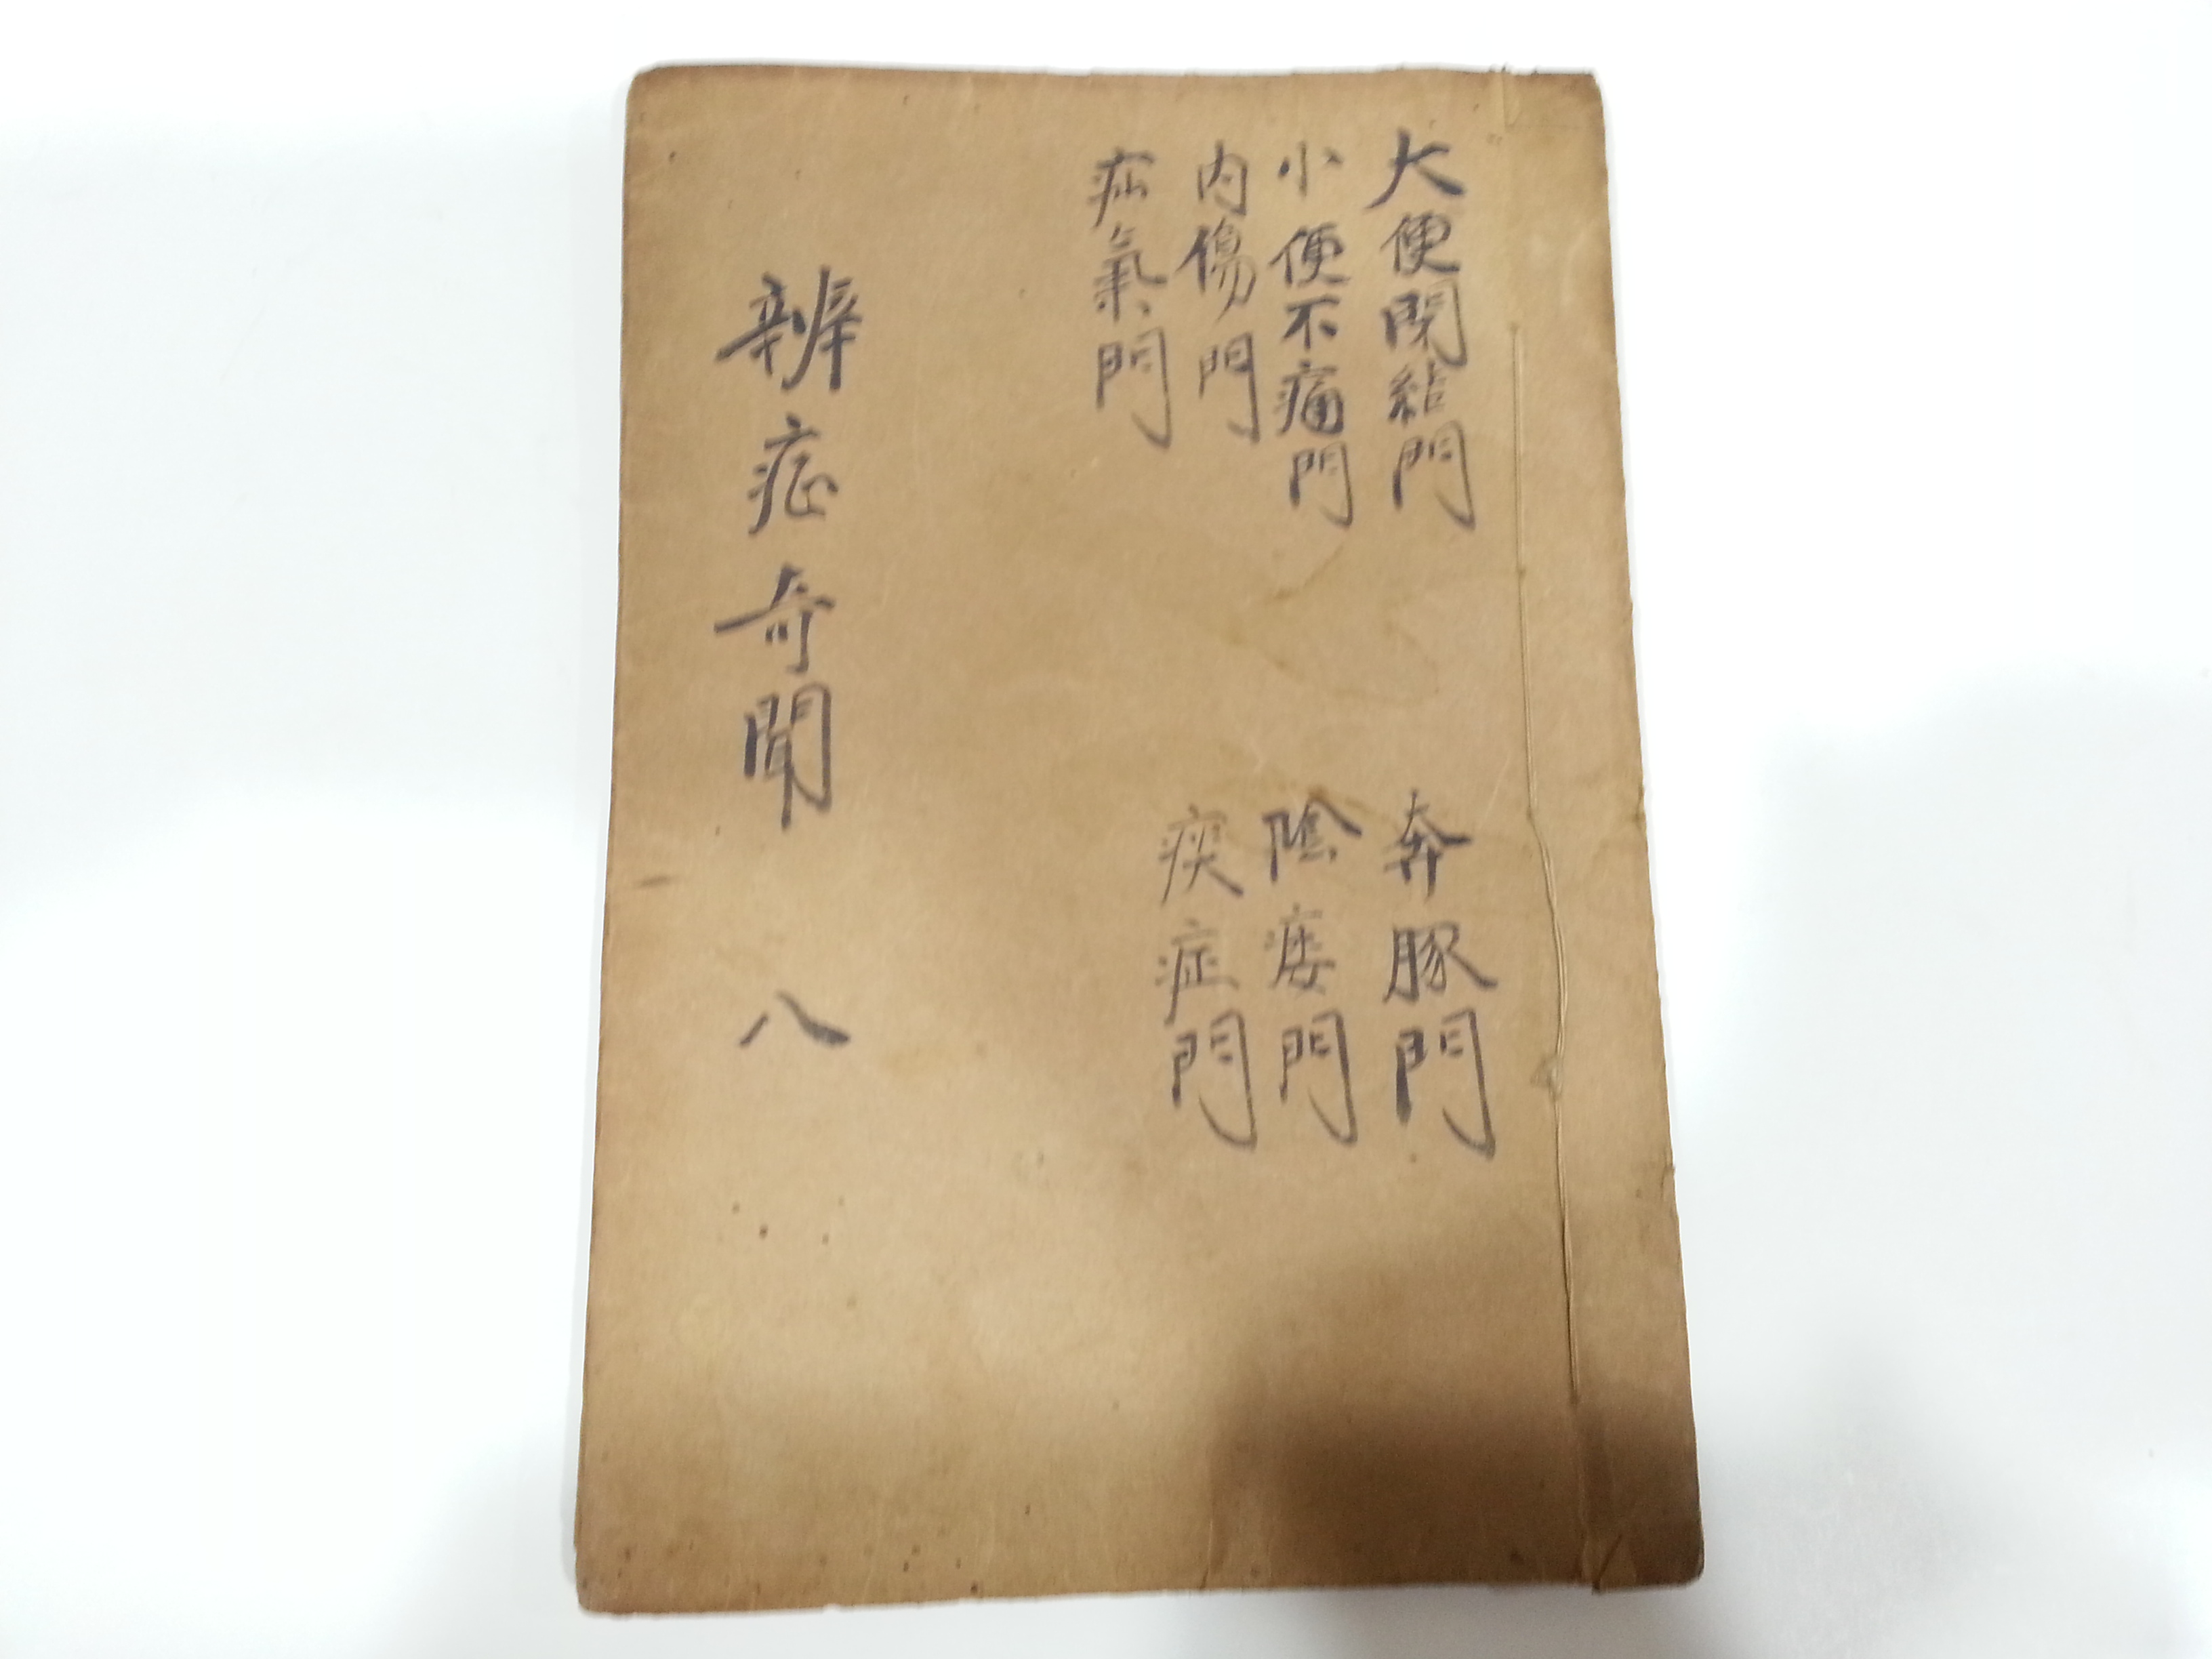 大便閉結門
小便不痛門
内傷門
疝氣門
奔豚門
陰痿門
痰症門
辨症奇聞 八